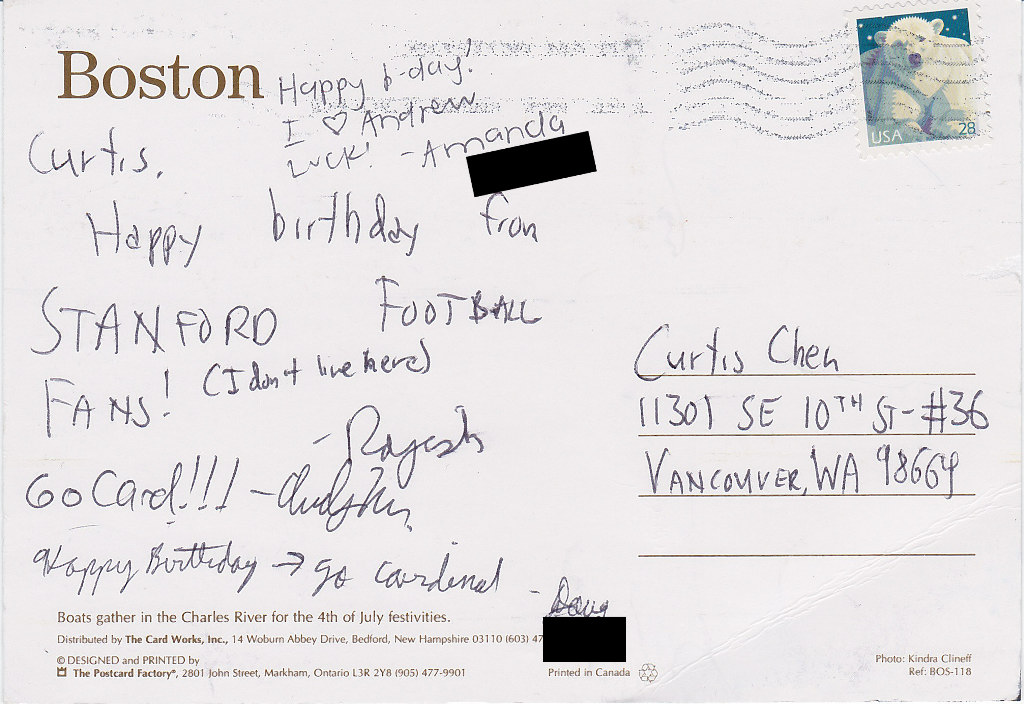 Boston
Happy b-day!
I ♡ Andrew
Luck! - Amanda
Curtis,
Happy birthday from
STANFORD FOOTBALL
FANS! (I don't live here)
- Rajesh
Go Card!!! -
Happy Birthday → go cardinal - Doug
USA 28
Curtis Chen
11301 SE 10TH ST - #36
VANCOUVER, WA 98664
Boats gather in the Charles River for the 4th of July festivities.
Distributed by The Card Works, Inc., 14 Woburn Abbey Drive, Bedford, New Hampshire 03110 (603) 47
© DESIGNED and PRINTED by
The Postcard Factory®, 2801 John Street, Markham, Ontario L3R 2Y8 (905) 477-9901
Printed in Canada
Photo: Kindra Clineff
Ref: BOS-118